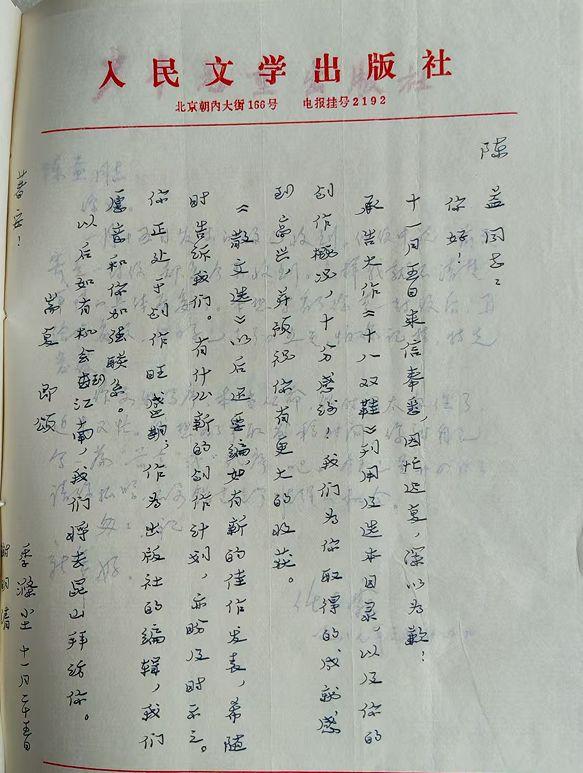 人民文学出版社
北京朝内大街166号 电报挂号2192
陈益同志：
你好！
十一月五日来信奉悉，因忙迟复，深以为歉！
承告大作《十八双鞋》利用及选本目录，以及你的
创作概况，十分感谢！我们为你取得的成就，感
到高兴，并预祝你有更大的收获。
《散文选》以后还要编，如有新的佳作发表，希随
时告诉我们。有什么新的创作计划，亦盼及时示之。
你正处于创作旺盛期，作为出版社的编辑，我们
愿意和你加强联系。
以后如有机会到江南，我们将去昆山拜访你。
耑复 即颂
著安！
十一月二十五日